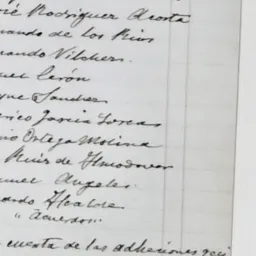 sé Rodriguez Acosta
nando de los Rios
nando Vilchez
uel Cerón
que Sanchez
erico Garcia Lorcas
nio Ortega Molina
Ruiz de Almodovar
nuel Angeles
ardo Alcalde
"Acuerdos"
cuenta de las adhesiones reci